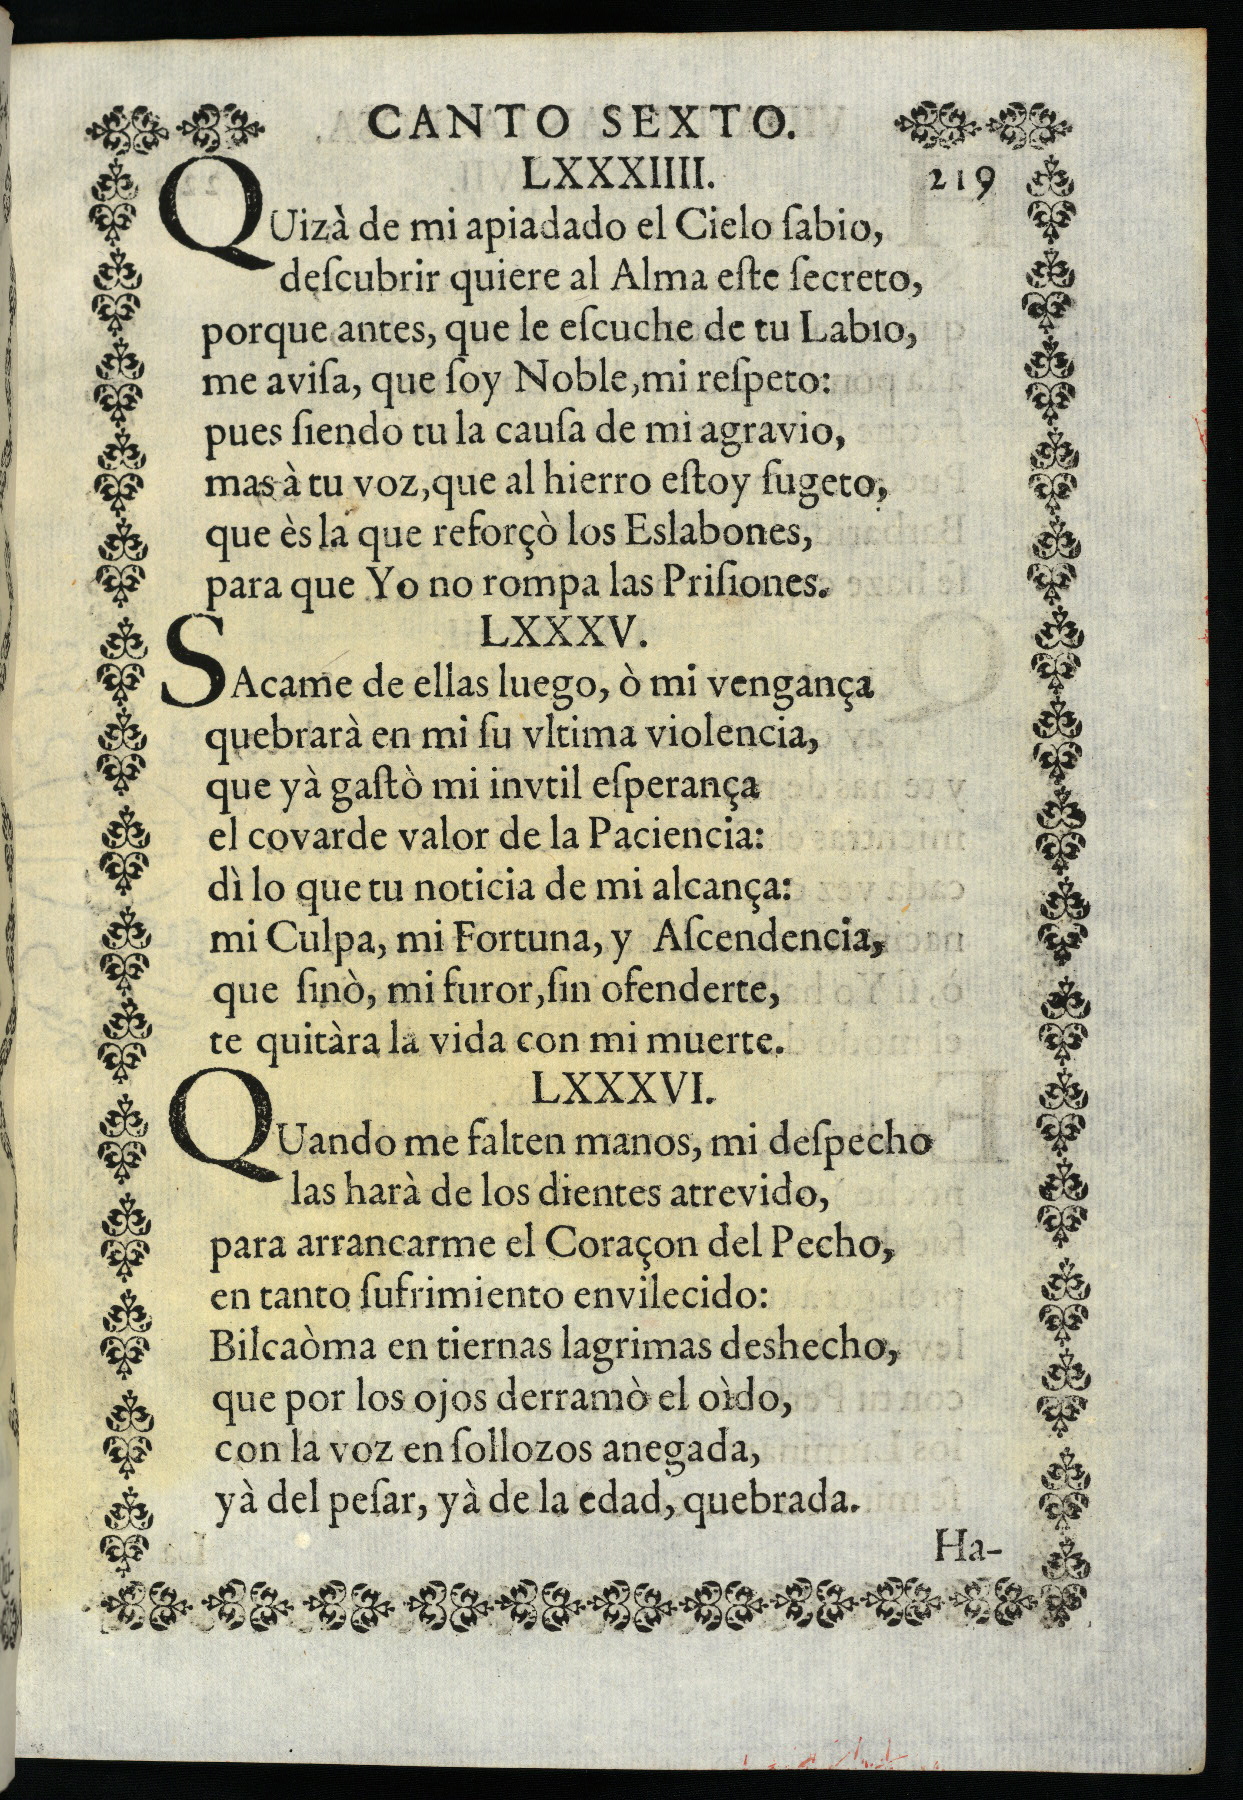 CANTO SEXTO.
LXXXIIII. 219
QUizà de mi apiadado el Cielo ſabio,
deſcubrir quiere al Alma eſte ſecreto,
porque antes, que le eſcuche de tu Labio,
me aviſa, que ſoy Noble, mi reſpeto:
pues ſiendo tu la cauſa de mi agravio,
mas à tu voz, que al hierro eſtoy ſugeto,
que ès la que reforçò los Eslabones,
para que Yo no rompa las Priſiones.
LXXXV.
SAcame de ellas luego, ò mi vengança
quebrarà en mi ſu vltima violencia,
que yà gaſtò mi invtil eſperança
el covarde valor de la Paciencia:
dì lo que tu noticia de mi alcança:
mi Culpa, mi Fortuna, y Aſcendencia,
que ſinò, mi furor, ſin ofenderte,
te quitàra la vida con mi muerte.
LXXXVI.
QUando me falten manos, mi deſpecho
las harà de los dientes atrevido,
para arrancarme el Coraçon del Pecho,
en tanto ſufrimiento envilecido:
Bilcaòma en tiernas lagrimas deshecho,
que por los ojos derramò el oìdo,
con la voz en ſollozos anegada,
yà del peſar, yà de la edad, quebrada.
Ha-